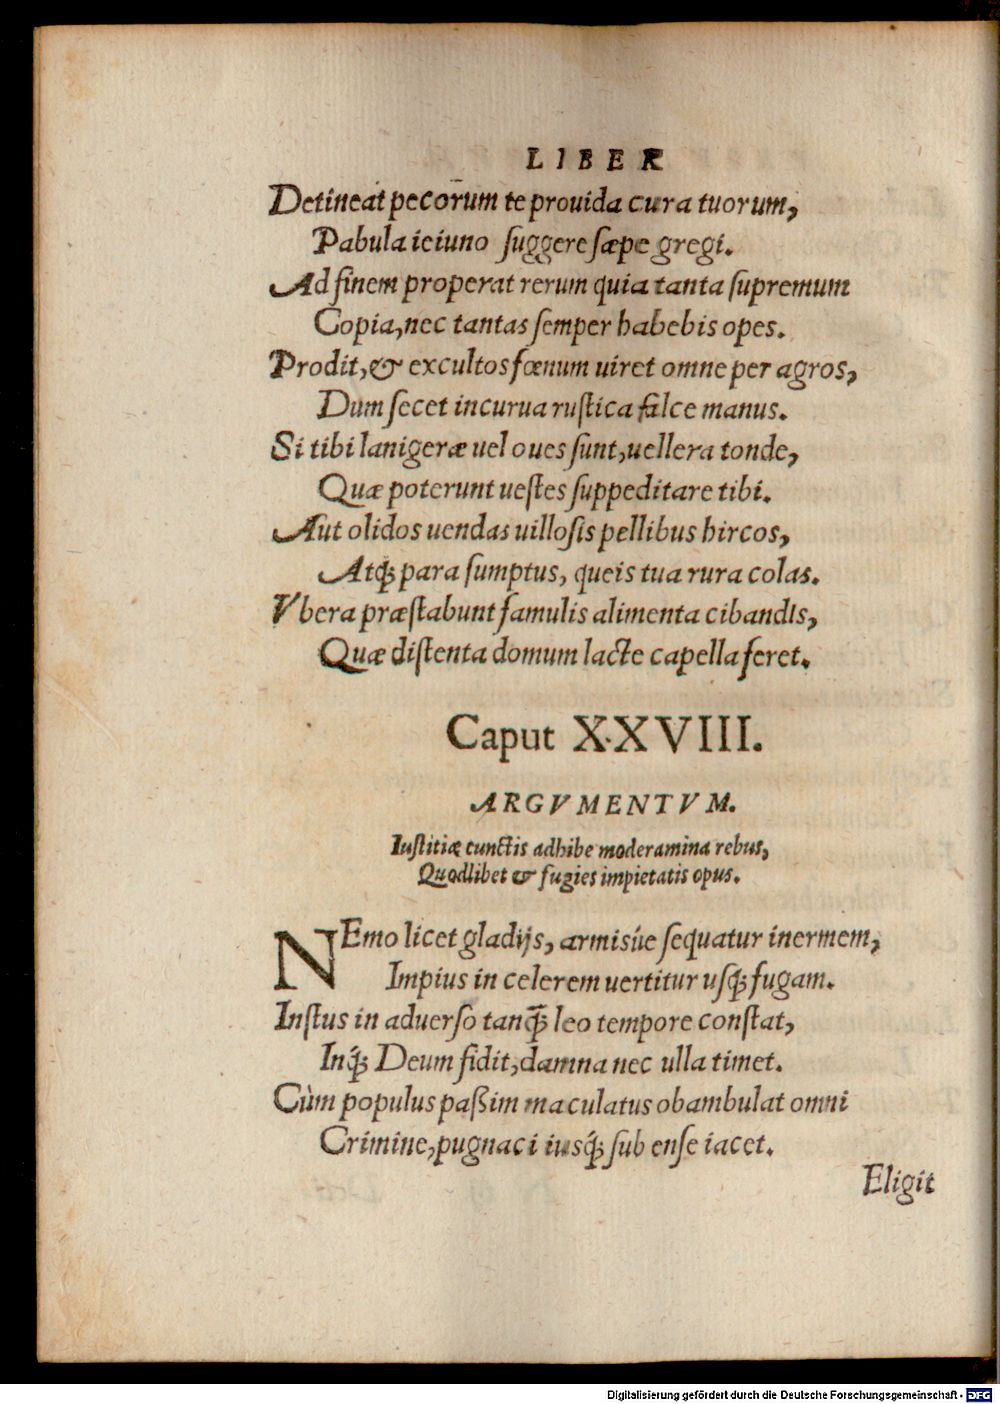 LIBER
Detineat pecorum te prouida cura tuorum,
Pabula ieiuno ſuggere ſæpe gregi.
Ad finem properat rerum quia tanta ſupremum
Copia, nec tantas ſemper habebis opes.
Prodit, & excultos fœnum uiret omne per agros,
Dum ſecet incurua ruſtica falce manus.
Si tibi lanigeræ uel oues ſunt, uellera tonde,
Quæ poterunt ueſtes ſuppeditare tibi.
Aut olidos uendas uilloſis pellibus hircos,
Atq́; para ſumptus, queis tua rura colas.
Vbera præſtabunt famulis alimenta cibandis,
Quæ diſtenta domum lacte capella feret.
Caput XXVIII.
ARGVMENTVM.
Iuſtitiæ cunctis adhibe moderamina rebus,
Quodlibet & fugies impietatis opus.
NEmo licet gladijs, armisúe ſequatur inermem,
Impius in celerem uertitur uſq́; fugam.
Inſtus in aduerſo tanq̃; leo tempore conſtat,
Inq́; Deum fidit, damna nec ulla timet.
Cùm populus paßim maculatus obambulat omni
Crimine, pugnaci iusq́; ſub enſe iacet.
Eligit
Digitalisierung gefördert durch die Deutsche Forschungsgemeinschaft - DFG